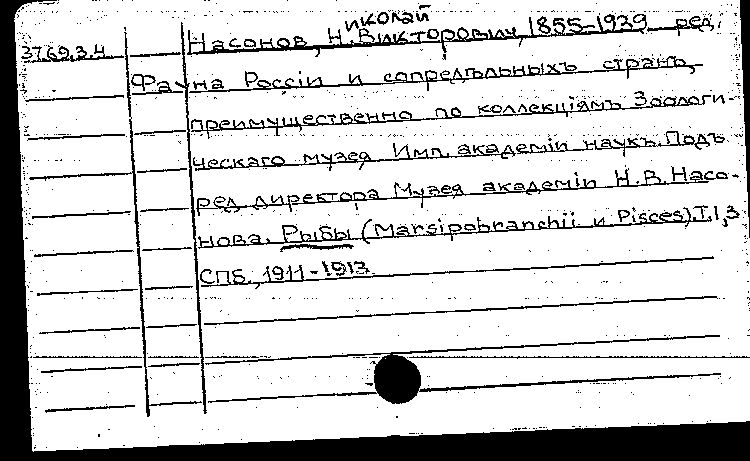 николай
3769.3.4 Насонов, Н. Викторович, 1855-1939 ред.
Фауна Россіи и сопредѣльныхъ странъ,
преимущественно по коллекціямъ Зоологи-
ческаго музея Имп. академіи наукъ. Подъ
ред. директора Музея академіи Н.В. Насо-
нова. Рыбы (Marsipobranchii и Pisces). Т.1,3
СПБ., 1911-1913